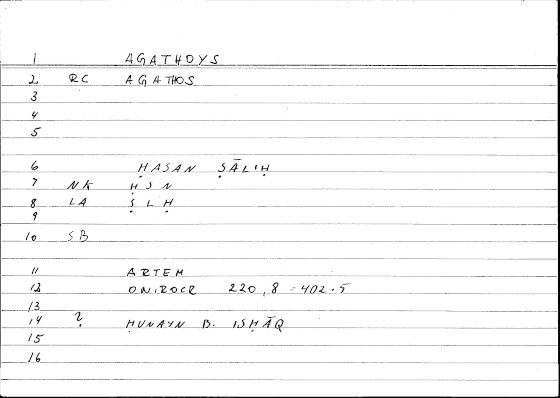 1 AGATHOYS
2 RC AGATHOS
3
4
5
6 ḤASAN ṢĀLIḤ
7 NK ḤSN
8 LA ṢLḤ
9
10 SB
11 ARTEM
12 ONIROCR 220,8 - 402.5
13
14 ? ḤUNAYN B. ISḤĀQ
15
16